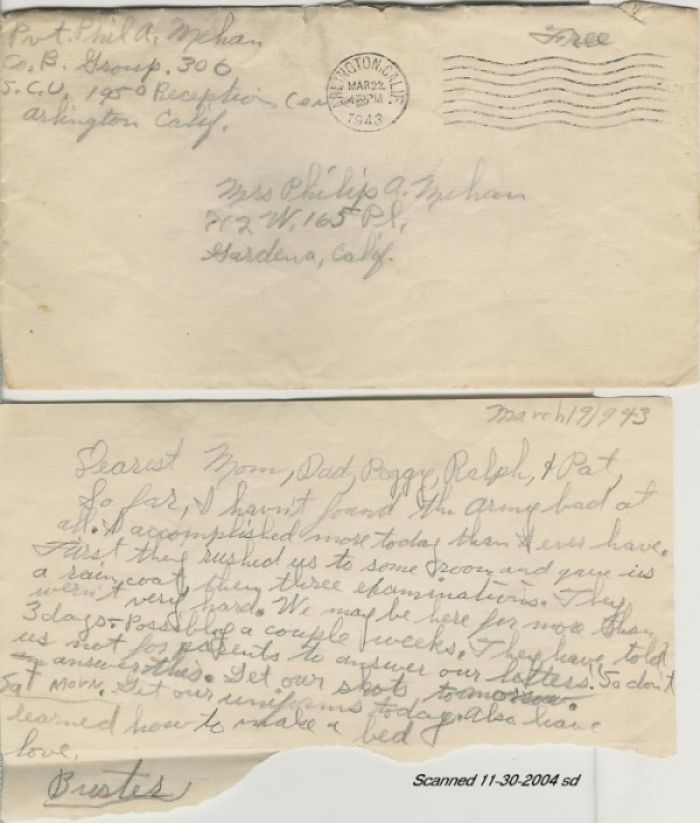 Pvt. Phil A. Mehan
Co. B. Group. 306
S.C.U. 1950 Reception Cen
Arlington Calif.
Free
ARLINGTON, CALIF.
MAR 22
PM
1943
Mrs Philip A. Mehan
712 W. 165 Pl.
Gardena, Calif.
March 19 1943
Dearest Mom, Dad, Peggy, Ralph, & Pat,
So far, I havn't found the army bad at
all. I accomplished more today than I ever have.
First they rushed us to some room and gave us
a raincoat then three examinations. They
weren't very hard. We may be here for more than
3 days - Possibly a couple weeks. They have told
us not for parents to answer our letters. So don't
answer this. Get our shots tomorrow.
Sat morn. Got our uniforms today. Also have
learned how to make a bed
love,
Buster
Scanned 11-30-2004 sd